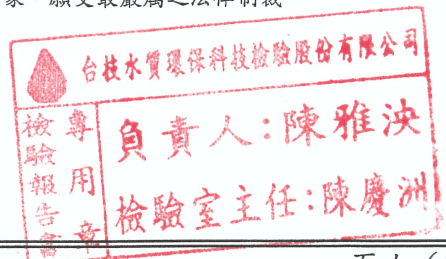 家，願受最嚴厲之法律制裁
台技水質環保科技檢驗股份有限公司
檢驗報告書
專用章
負責人：陳雅泱
檢驗室主任：陳慶洲